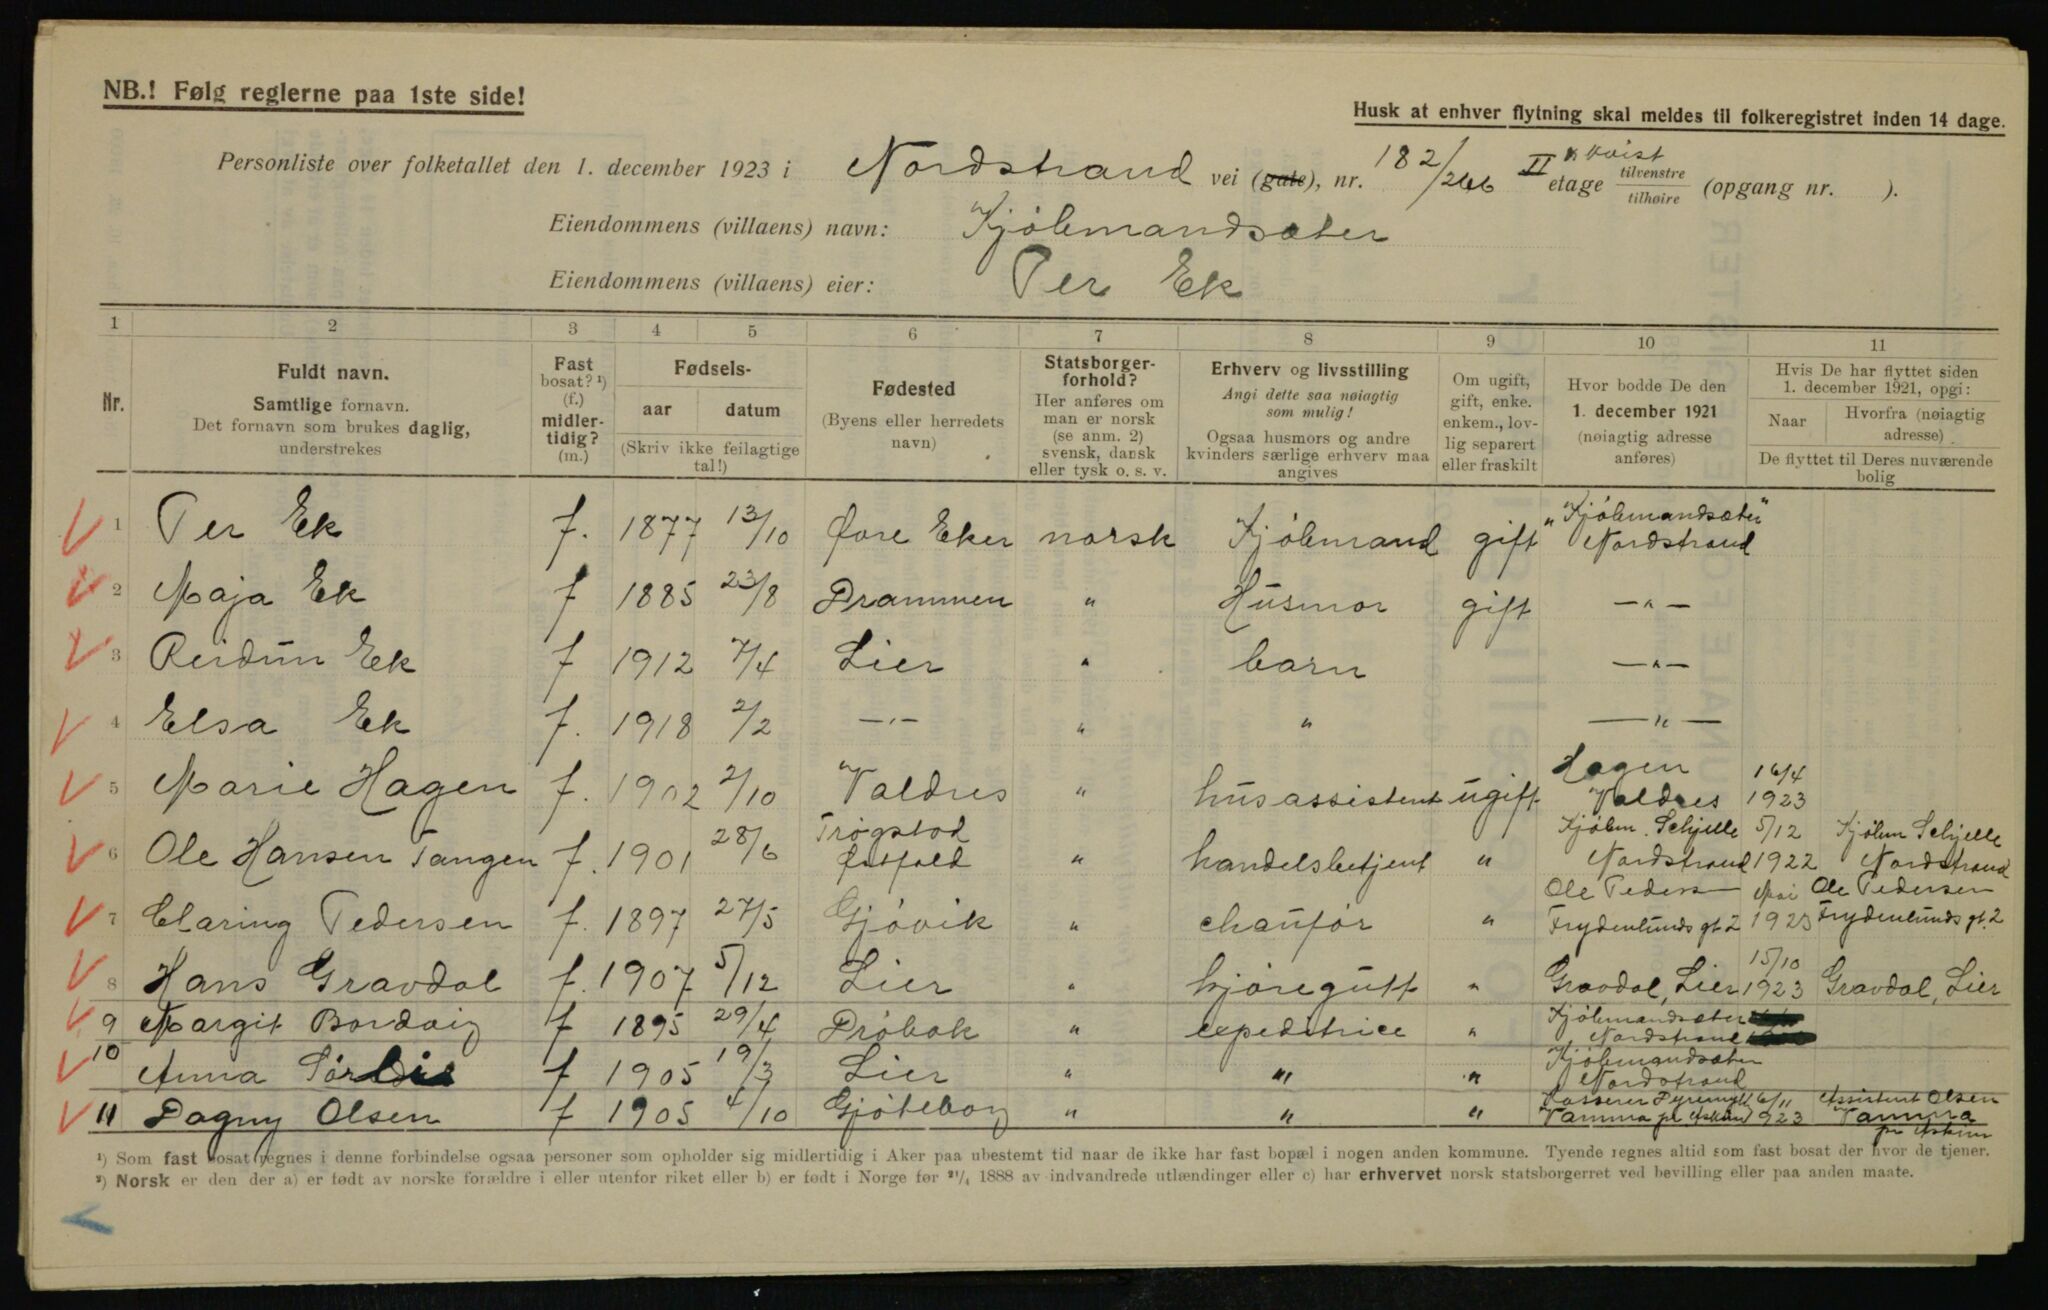 NB.! Følg reglerne paa 1ste side!
Husk at enhver flytning skal meldes til folkeregistret inden 14 dage.
Personliste over folketallet den 1. december 1923 i Nordstrand vei (gate), nr. 182/266 II etage kvist tilvenstre tilhøire (opgang nr. ).
Eiendommens (villaens) navn: Kjöbmandsæter
Eiendommens (villaens) eier: Per Ek
1 2 3 4 5 6 7 8 9 10 11
Nr.
Fuldt navn.
Samtlige fornavn.
Det fornavn som brukes daglig,
understrekes
Fast
bosat? ¹)
(f.)
midler-
tidig?
(m.)
Fødsels-
aar datum
(Skriv ikke feilagtige
tal!)
Fødested
(Byens eller herredets
navn)
Statsborger-
forhold?
Her anføres om
man er norsk
(se anm. 2)
svensk, dansk
eller tysk o. s. v.
Erhverv og livsstilling
Angi dette saa nøiagtig
som mulig!
Ogsaa husmors og andre
kvinders særlige erhverv maa
angives
Om ugift,
gift, enke.
enkem., lov-
lig separert
eller fraskilt
Hvor bodde De den
1. december 1921
(nøiagtig adresse
anføres)
Hvis De har flyttet siden
1. december 1921, opgi:
Naar Hvorfra (nøiagtig
adresse)
De flyttet til Deres nuværende
bolig
1 Per Ek f. 1877 13/10 Øvre Eker norsk Kjöbmand gift "Kjöbmandsæter" Nordstrand
2 Maja Ek f 1885 23/8 Drammen " Husmor gift —"—
3 Reidun Ek f 1912 7/4 Lier " barn —"—
4 Elsa Ek f. 1918 2/2 —"— " " —"—
5 Marie Hagen f. 1902 2/10 Valdres " husassistent ugift Hagen Valdres 16/4 1923
6 Ole Hansen Tangen f. 1901 28/6 Trøgstad Østfold " handelsbetjent " Kjöbm. Schjelle Nordstrand 5/12 1922 Kjöbm Schjelle Nordstrand
7 Claring Pedersen f. 1897 27/5 Gjövik " chauför " Ole Peders— Frydenlunds gt 2 Mai 1923 Ole Pedersen Frydenlunds gt. 2
8 Hans Gravdal f. 1907 5/12 Lier " kjöregutt " Gravdal, Lier 15/10 1923 Gravdal, Lier
9 Margit Bordvig f 1895 29/4 Dröbak " expeditrice " Kjöbmandsæter Nordstrand
10 Anna f 1905 19/3 Lier " " " Kjöbmandsæter Nordstrand
11 Dagny Olsen f 1905 4/10 Gjöteborg " " " Kasserer Vamma pr Askim 6/11 1923 Assistent Olsen Vamma pr Askim
¹) Som fast bosat regnes i denne forbindelse ogsaa personer som opholder sig midlertidig i Aker paa ubestemt tid naar de ikke har fast bopæl i nogen anden kommune. Tyende regnes altid som fast bosat der hvor de tjener.
²) Norsk er den der a) er født av norske forældre i eller utenfor riket eller b) er født i Norge før 21/4 1888 av indvandrede utlændinger eller c) har erhvervet norsk statsborgerret ved bevilling eller paa anden maate.